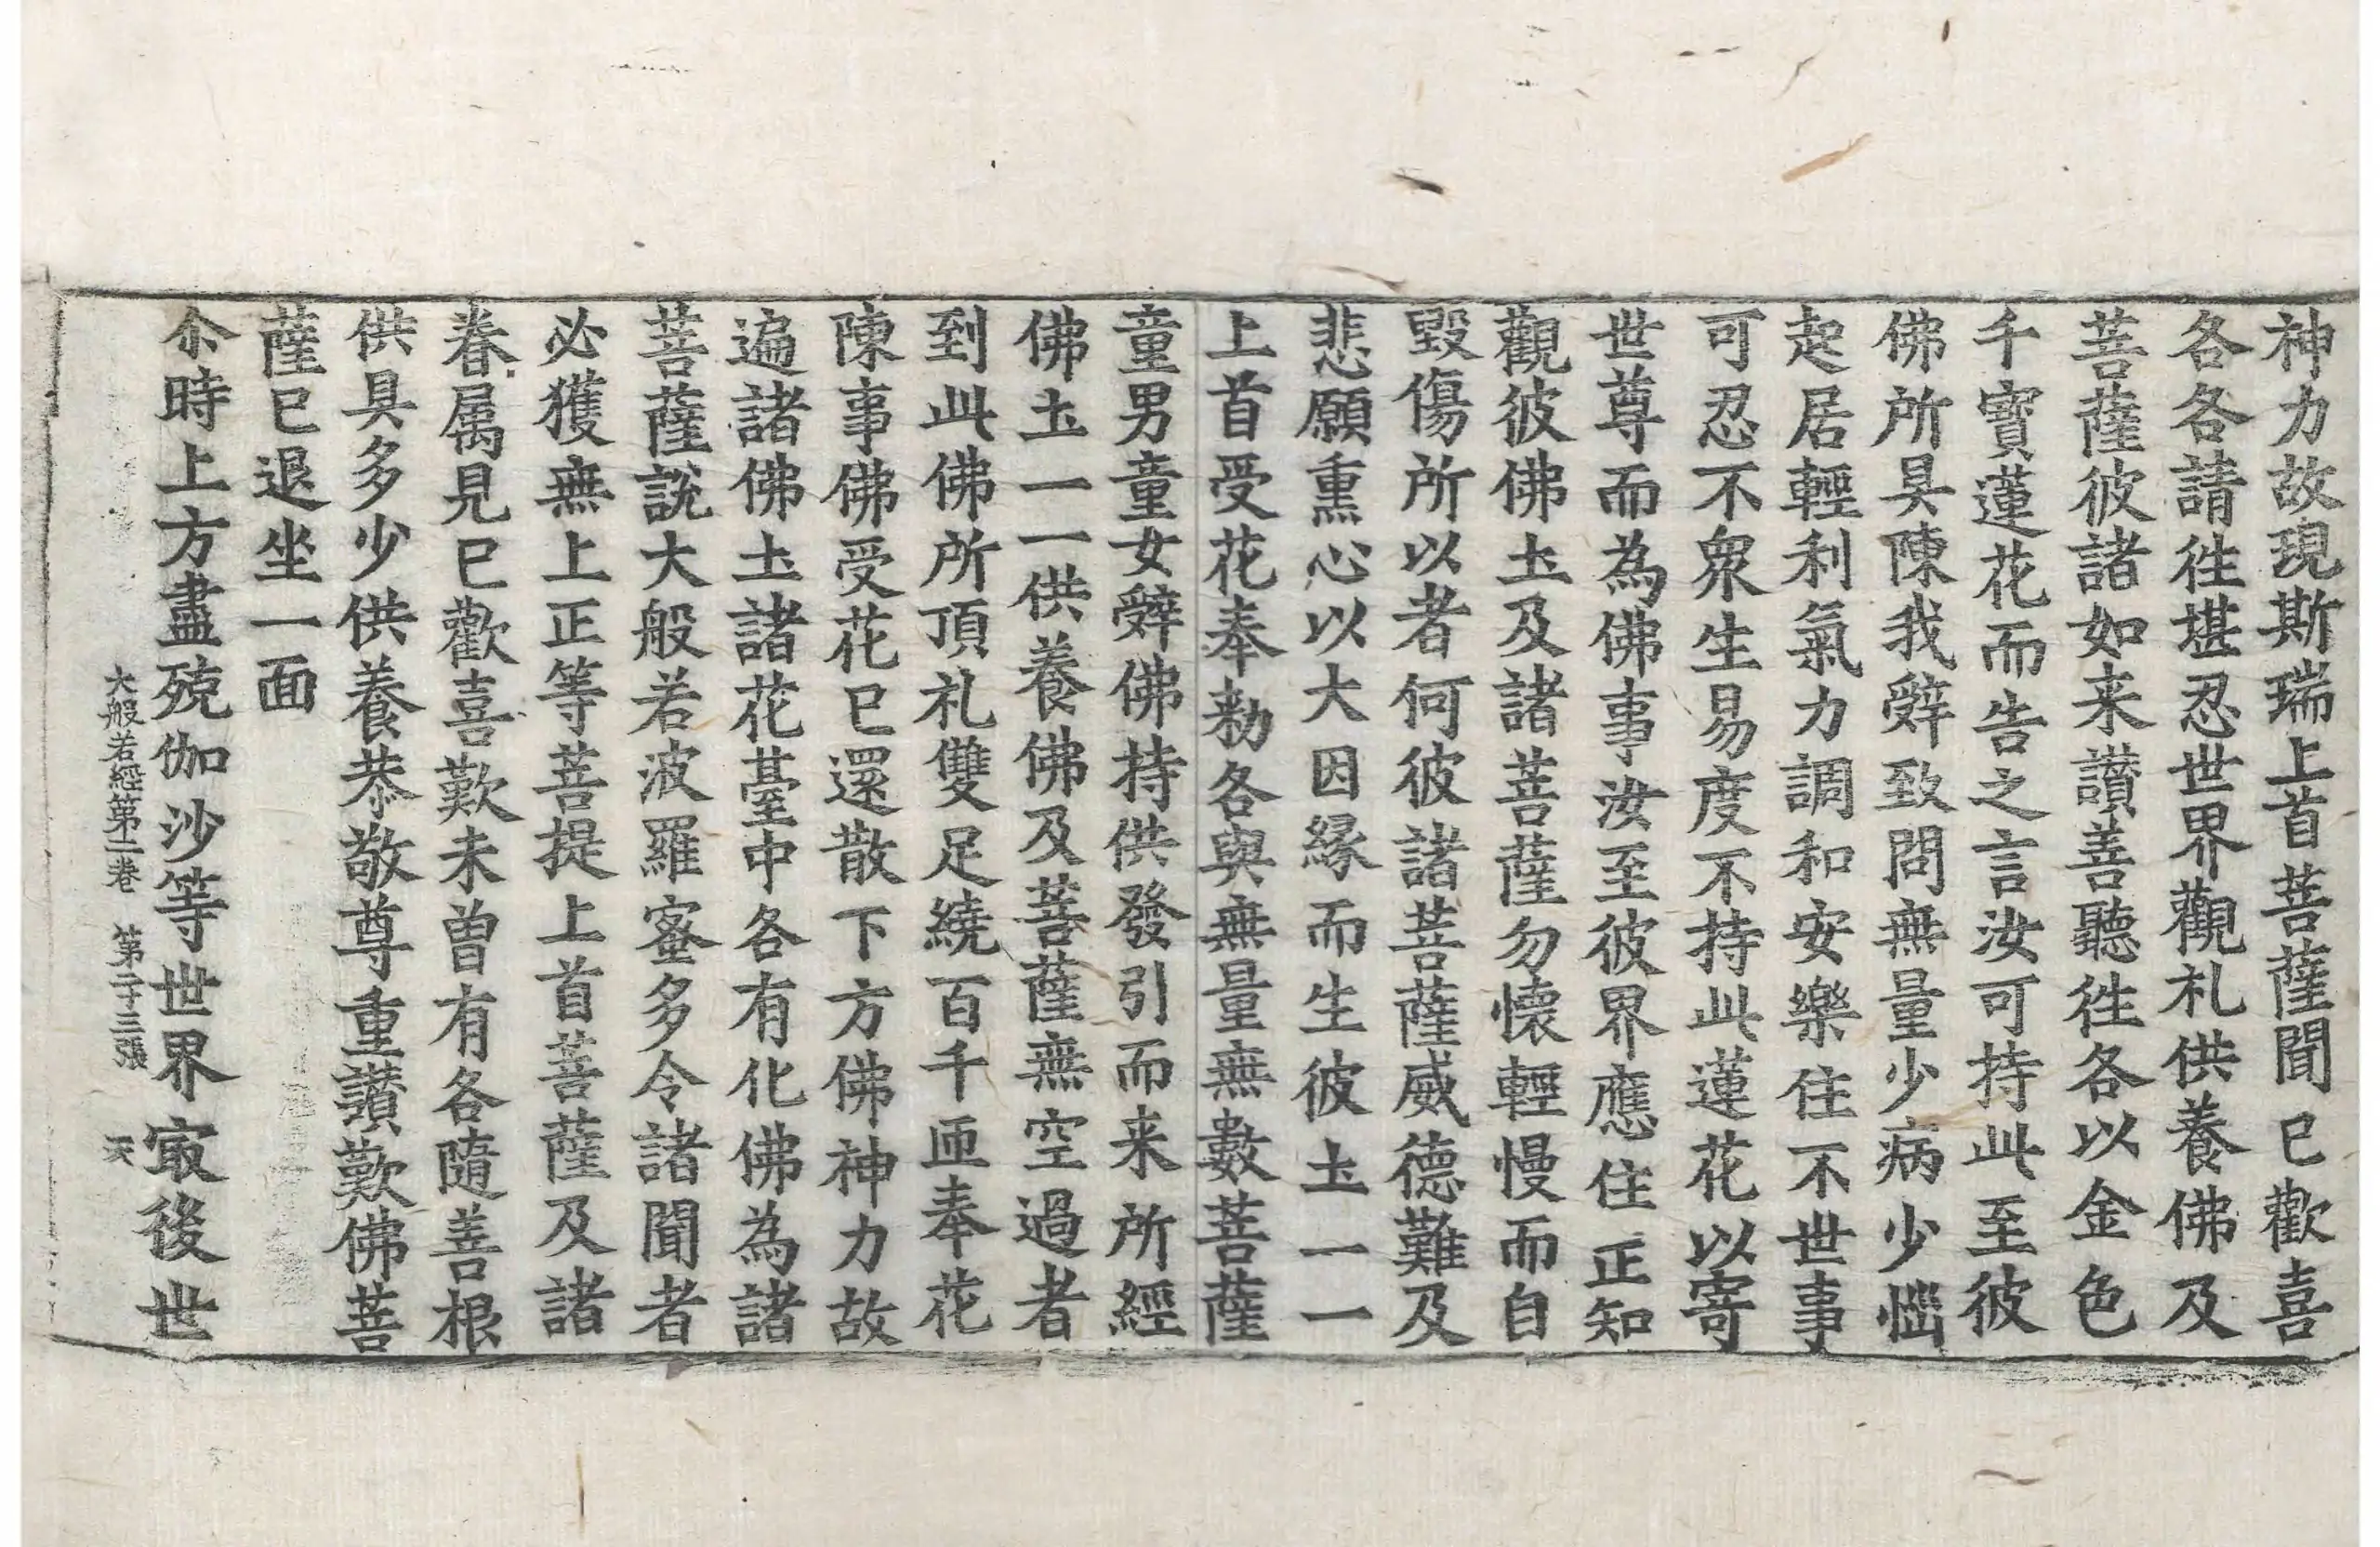 神力故現斯瑞上首菩薩聞已歡喜
各各請往堪忍世界觀礼供養佛及
菩薩彼諸如来讃善聽徃各以金色
千寳蓮花而告之言汝可持此至彼
佛所具陳我辤致問無量少病少惱
起居輕利氣力調和安樂住不世事
可忍不衆生易度不持此蓮花以寄
世尊而為佛事汝至彼界應住正知
觀彼佛土及諸菩薩勿懷輕慢而自
毀傷所以者何彼諸菩薩威德難及
悲願熏心以大因緣而生彼土一一
上首受花奉勑各與無量無數菩薩
童男童女辤佛持供發引而来所經
佛土一一供養佛及菩薩無空過者
到此佛所頂礼雙足繞百千匝奉花
陳事佛受花已還散下方佛神力故
遍諸佛土諸花臺中各有化佛為諸
菩薩說大般若波羅蜜多令諸聞者
必獲無上正等菩提上首菩薩及諸
眷属見已歡喜歎未曾有各隨善根
供具多少供養恭敬尊重讃歎佛菩
薩已退坐一面
尒時上方盡殑伽沙等世界㝡後世
大般若經第二卷　第二十三張　天